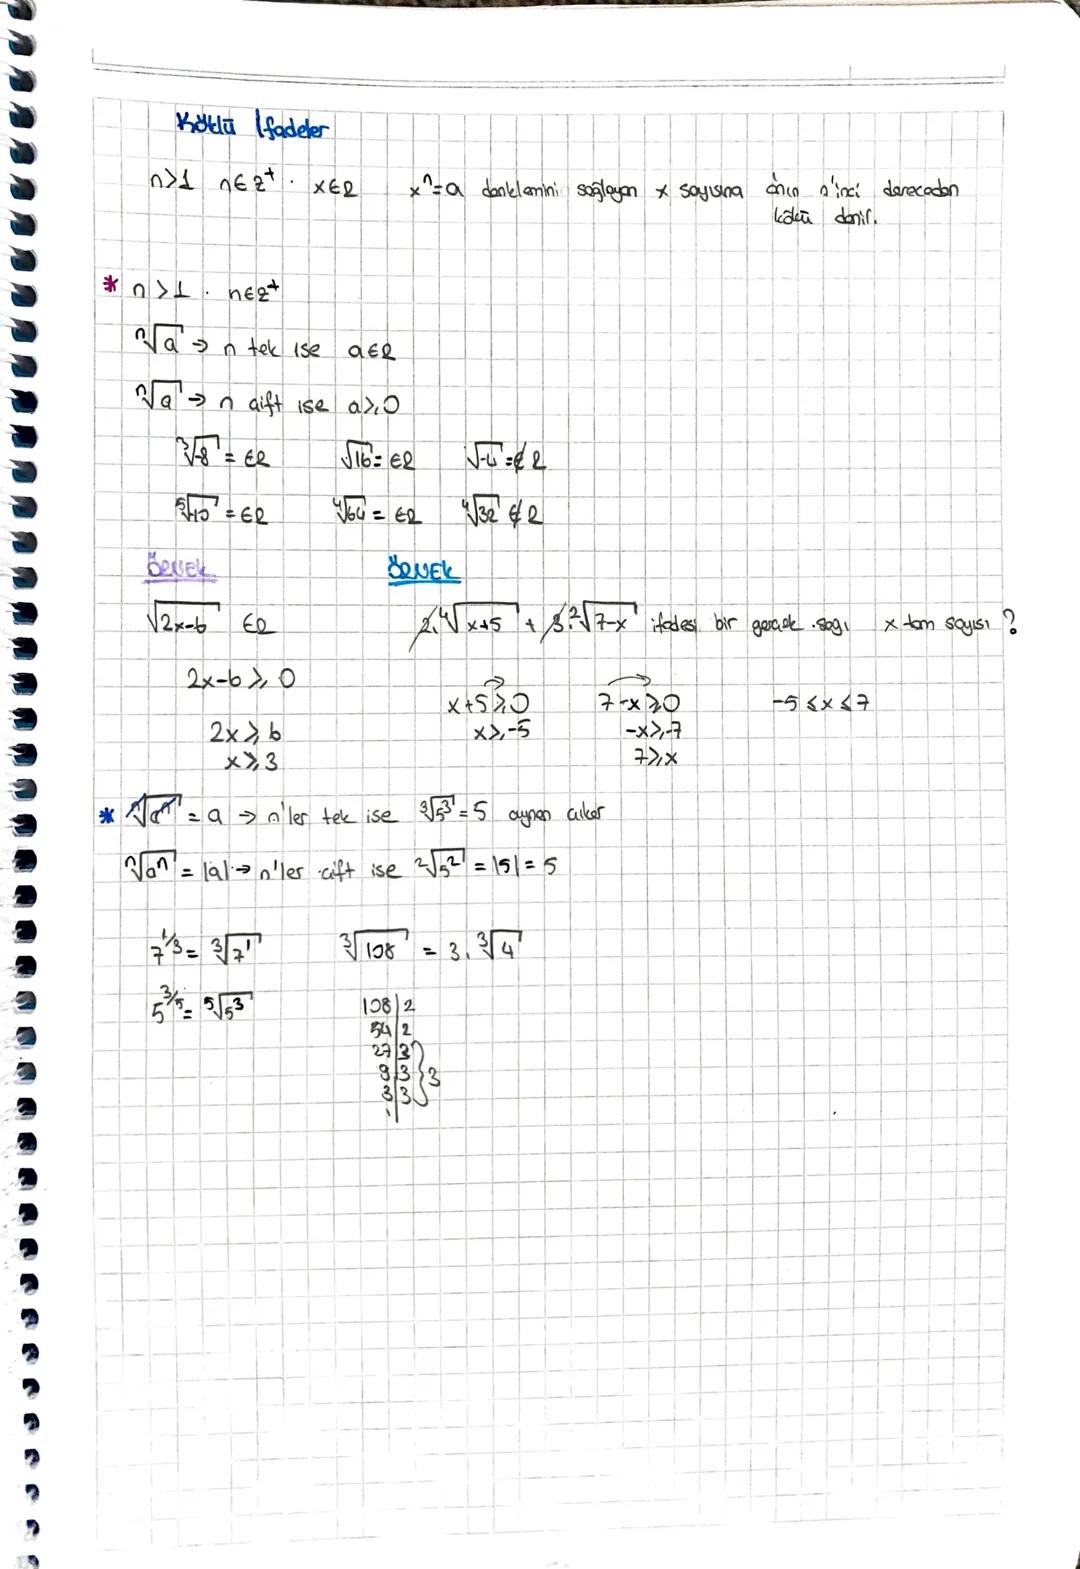 Köklü İfadeler
n>1 n∈Z⁺. x∈R xⁿ=a denklemini sağlayan x sayısına a'nın n'inci dereceden
kökü denir.
* n>1. n∈Z⁺
ⁿ√a → n tek ise a∈R
ⁿ√a → n çift ise a≥0
³√-8 = ∈R √16 = ∈R √-4 = ∉R
⁵√10 = ∈R ⁴√64 = ∈R ⁴√32 ∉R
ÖRNEK ÖRNEK
√2x-6 ∈R 2.⁴√x+5 + 3.²√7-x ifadesi bir gerçek sayı x tam sayısı ?
2x-6≥0
x+5≥0 7-x≥0 -5≤x≤7
2x≥6 x≥-5 -x≥-7
x≥3 7≥x
* ⁿ√aⁿ = a → n'ler tek ise ³√5³ = 5 aynen çıkar
ⁿ√aⁿ = |a| → n'ler çift ise ²√5² = |5| = 5
7^1/3 = ³√7¹ ³√108 = 3.³√4
5^3/5 = ⁵√5³ 108|2
54|2
27|3
9|3 }3
3|3
1